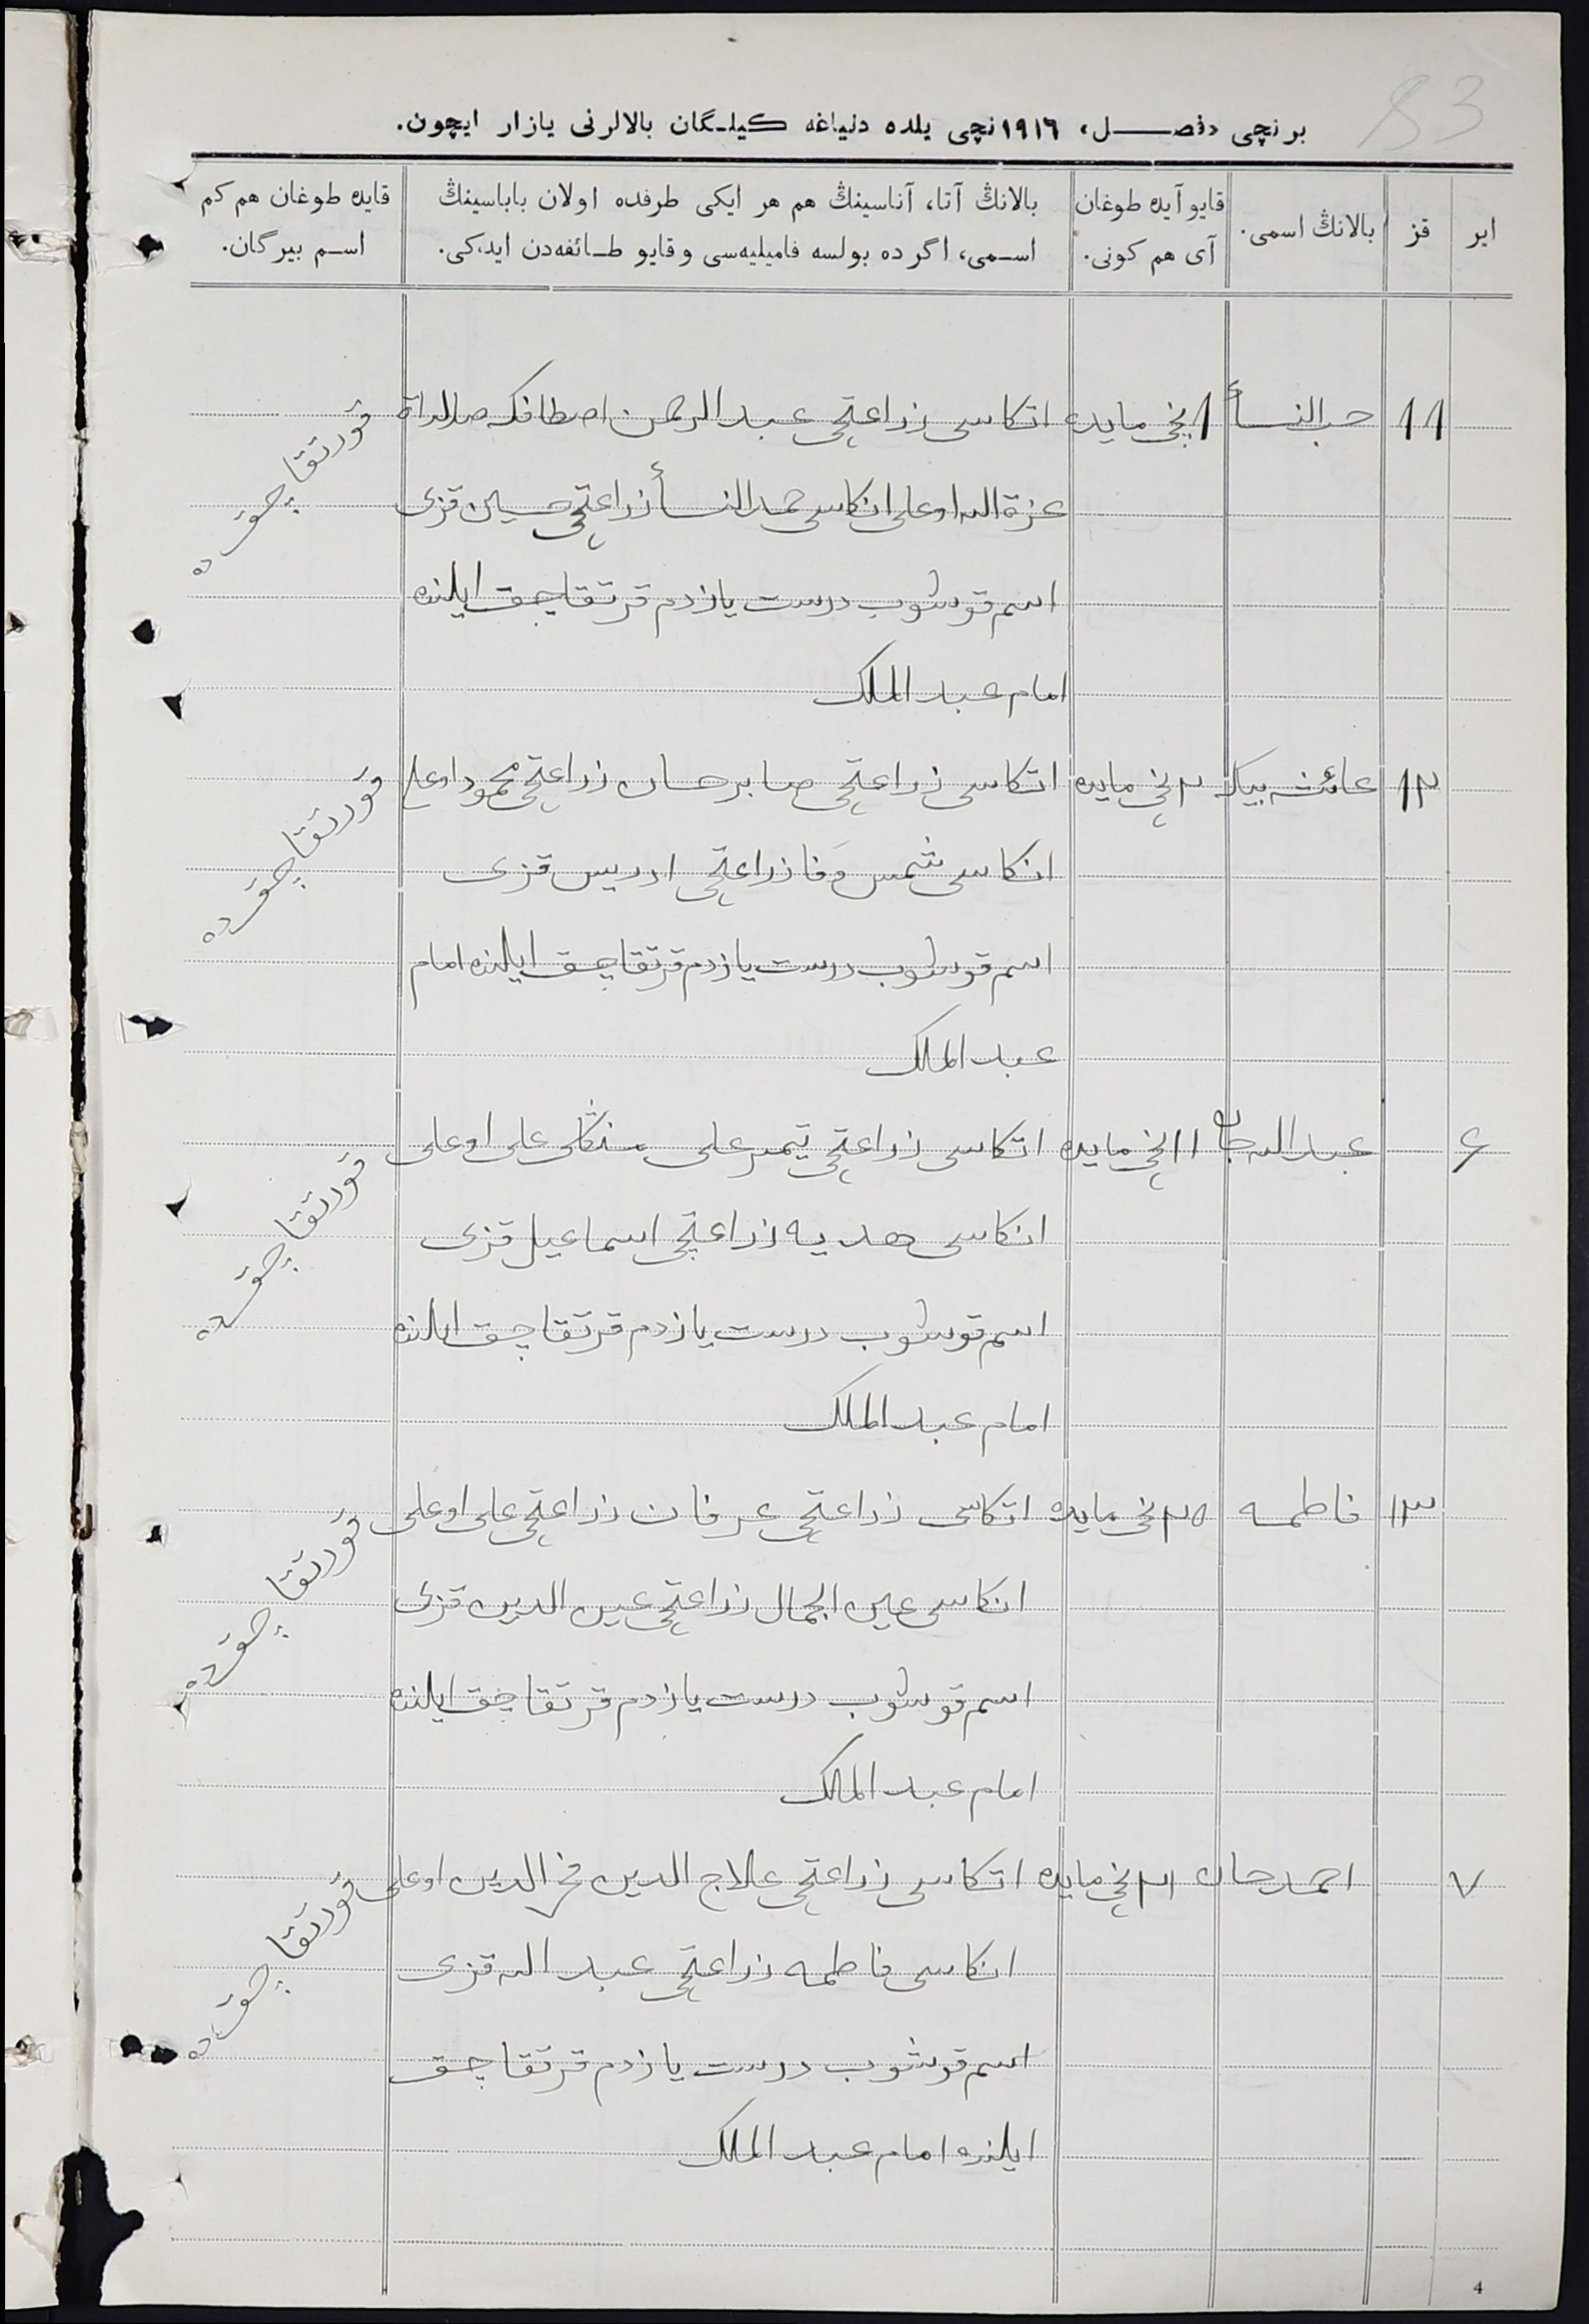 83
برنچی «فصل» ١٩١٦نچی يلده دنياغه كيلگان بالالرنی يازار ايچون.
اير
قز
بالانڭ اسمی.
قايو آيده طوغان
آی هم كونی.
بالانڭ آتا، آناسينڭ هم هر ايكی طرفده اولان باباسينڭ
اسمی، اگرده بولسه فاميليه‌سی و قايو طائفه‌دن ايدكی.
قايده طوغان هم كم
اسم بيرگان.
١١ حب النسأ ١نچی مايده اتكاسی زراعتچی عبد الرحمن
عزة الله اوغلی انكاسی حمد النسأ زراعتچی حسين قزی
اسم قوشوب درست يازدم قرتقاچق ايلنده
امام عبد الملك
قورتقاچقده
١٢ عائشه بيكه ٢نچی مايده اتكاسی زراعتچی صابرجان زراعتچی محمود اوغلی
انكاسی شمس وفا زراعتچی ادريس قزی
اسم قوشوب درست يازدم قرتقاچق ايلنده امام
عبد الملك
قورتقاچقده
٦ عبد الله جان ١١نچی مايده اتكاسی زراعتچی تيمر علی منكلی علی اوغلی
انكاسی هديه زراعتچی اسماعيل قزی
اسم قوشوب درست يازدم قرتقاچق ايلنده
امام عبد الملك
قورتقاچقده
١٣ فاطمه ٢٥نچی مايده اتكاسی زراعتچی عرفان زراعتچی علی اوغلی
انكاسی عين الجمال زراعتچی عين الدين قزی
اسم قوشوب درست يازدم قرتقاچق ايلنده
امام عبد الملك
قورتقاچقده
٧ احمد جان ٢١نچی مايده اتكاسی زراعتچی علاج الدين فخر الدين اوغلی
انكاسی فاطمه زراعتچی عبد الله قزی
اسم قوشوب درست يازدم قرتقاچق
ايلنده امام عبد الملك
قورتقاچقده
4